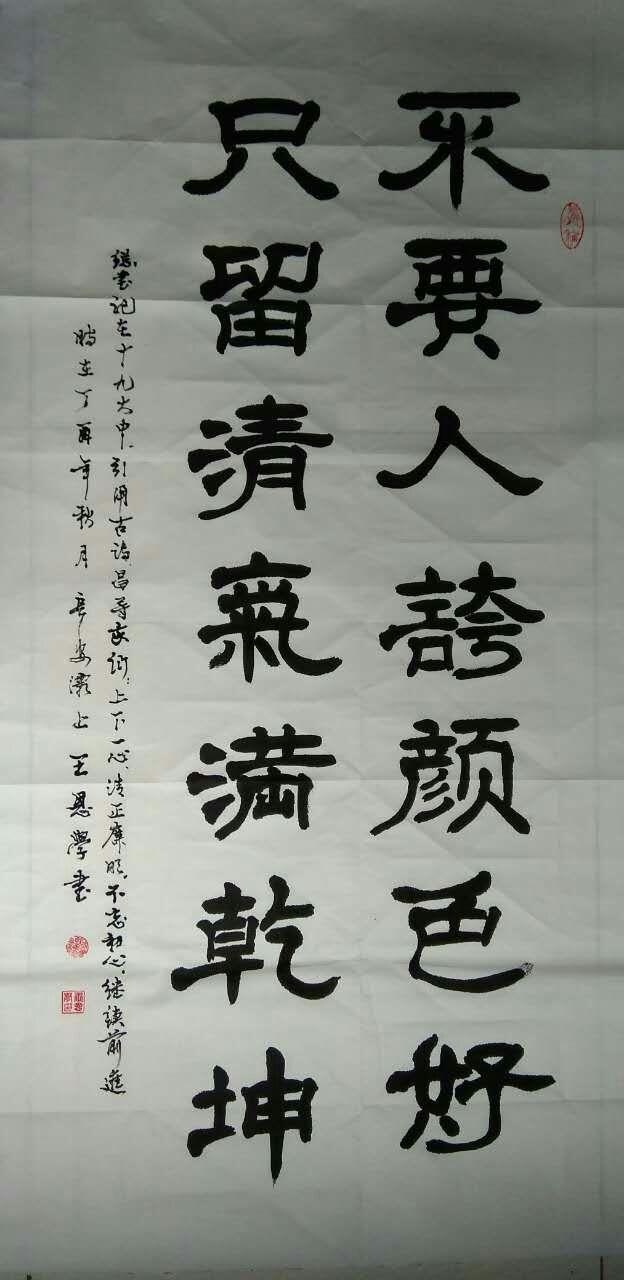 不要人誇颜色好
只留清氣満乾坤
总书记在十九大中引用古詩昌导家们:上下一心、清正廉明,不忘初心,继续前進
時在丁酉年秋月 長安灞上 王恩學書